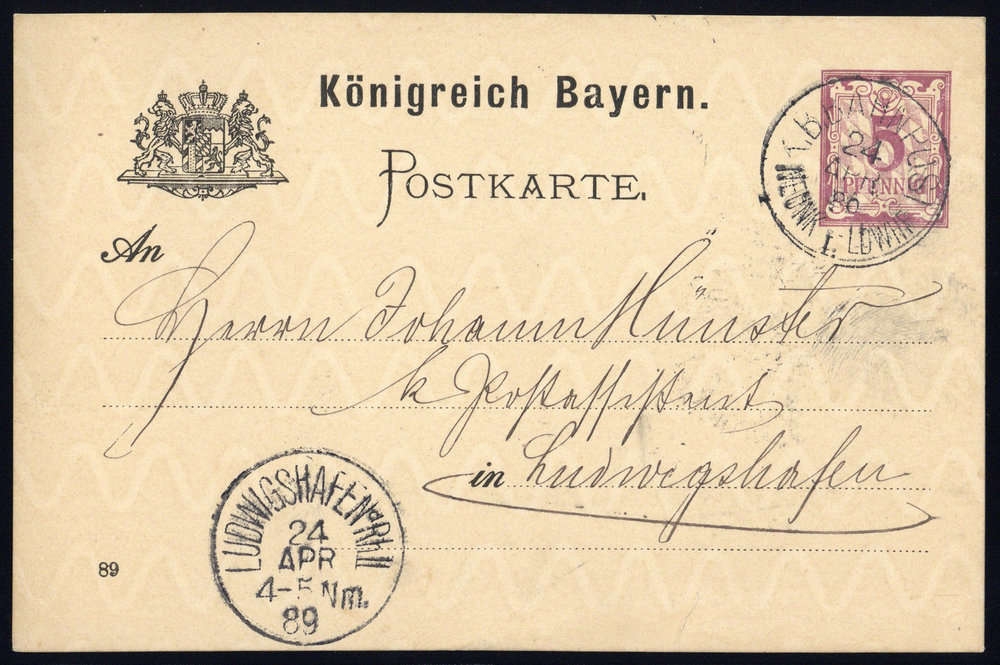 Königreich Bayern.
POSTKARTE.
5
PFENNIG
K.B.BAHNPOST
24
APR
86
NEUNK I.-LDWH
An
Herrn Johann Münster
k Postassistent
in Ludwigshafen
LUDWIGSHAFEN a/RH. II
24
APR
4-5 Nm.
89
89